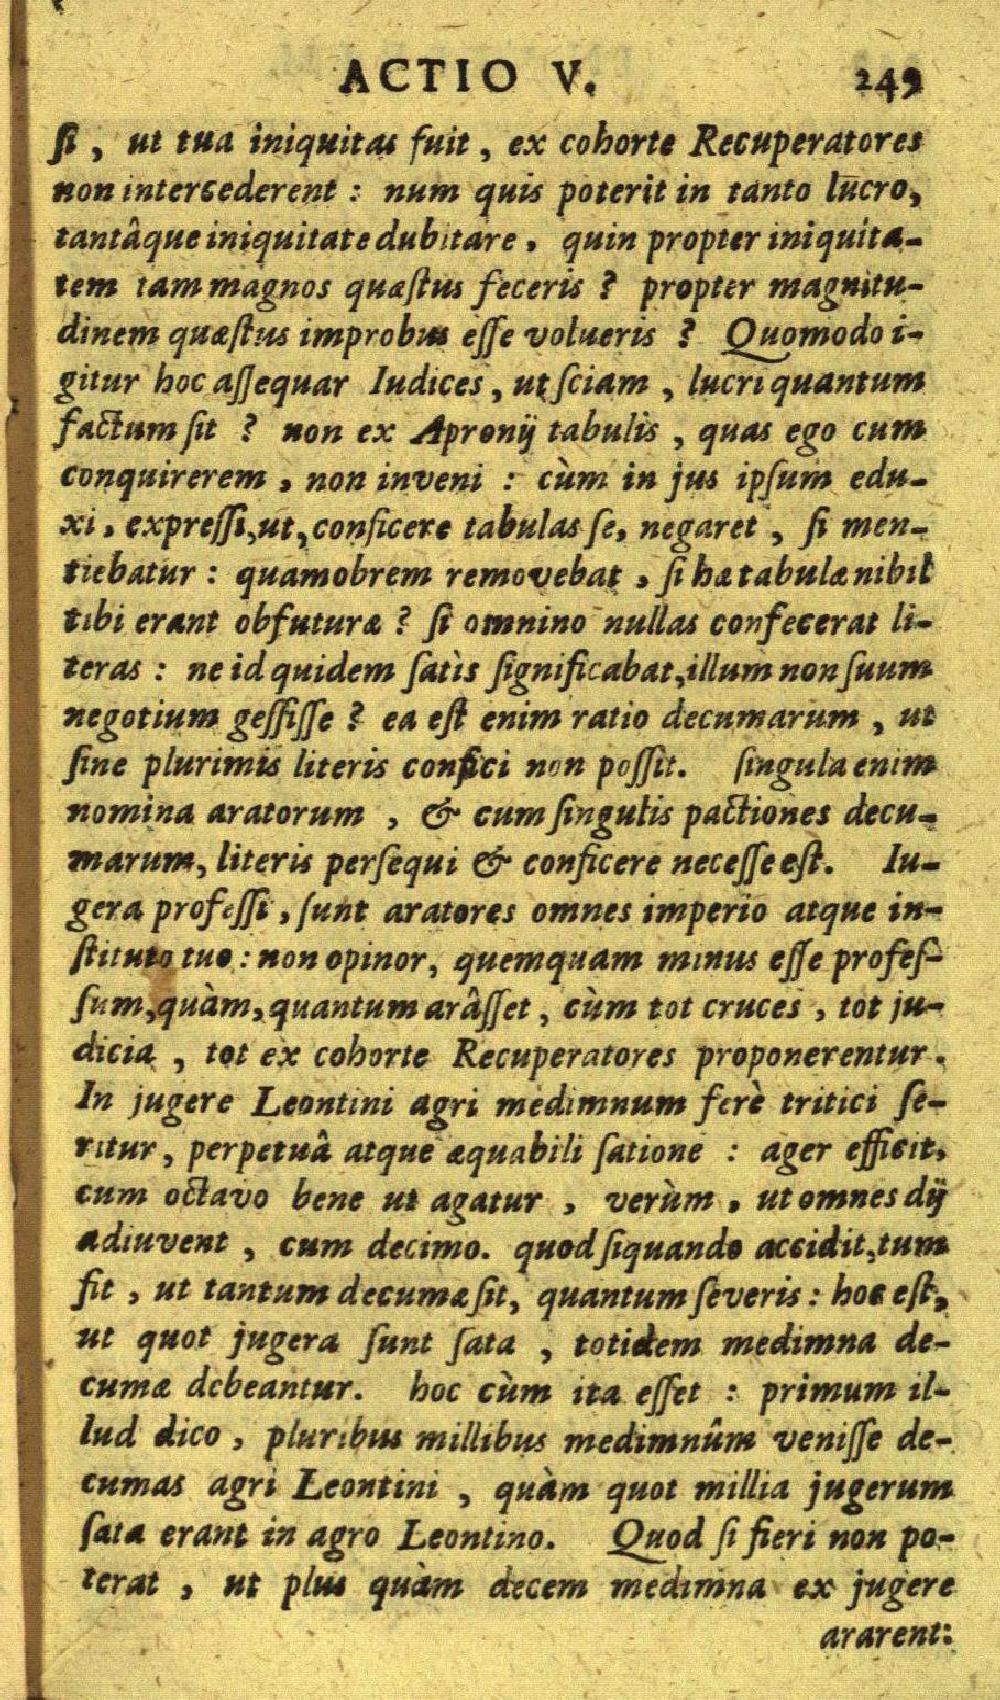 ACTIO V. 249
ſi, ut tua iniquitas fuit, ex cohorte Recuperatores
non intercederent: num quis poterit in tanto lucro,
tantâque iniquitate dubitare, quin propter iniquita-
tem tam magnos quæſtus feceris? propter magnitu-
dinem quæſtus improbus eſſe volueris? Quomodo i-
gitur hoc aſſequar Iudices, ut ſciam, lucri quantum
factum ſit? non ex Apronij tabulis, quas ego cum
conquirerem, non inveni: cùm in jus ipſum edu-
xi, expreſſi, ut, conficere tabulas ſe, negaret, ſi men-
tiebatur: quamobrem removebat, ſi hæ tabulæ nihil
tibi erant obfuturæ? ſi omnino nullas confecerat li-
teras: ne id quidem ſatìs ſignificabat, illum non ſuum
negotium geſſiſſe? ea eſt enim ratio decumarum, ut
ſine plurimis literis confici non poſſit. ſingula enim
nomina aratorum, & cum ſingulis pactiones decu-
marum, literis perſequi & conficere neceſſe eſt. Iu-
gera profeſſi, ſunt aratores omnes imperio atque in-
ſtituto tuo: non opinor, quemquam minus eſſe profeſ-
ſum, quàm, quantum arâſſet, cùm tot cruces, tot ju-
dicia, tot ex cohorte Recuperatores proponerentur.
In jugere Leontini agri medimnum ferè tritici ſe-
ritur, perpetuâ atque æquabili ſatione: ager efficit,
cum octavo bene ut agatur, verùm, ut omnes dij
adiuvent, cum decimo. quod ſiquando accidit, tum
fit, ut tantum decumæ ſit, quantum ſeveris: hoc eſt,
ut quot jugera ſunt ſata, totidem medimna de-
cumæ debeantur. hoc cùm ita eſſet: primum il-
lud dico, pluribus millibus medimnûm veniſſe de-
cumas agri Leontini, quàm quot millia jugerum
ſata erant in agro Leontino. Quod ſi fieri non po-
terat, ut plus quàm decem medimna ex jugere
ararent: